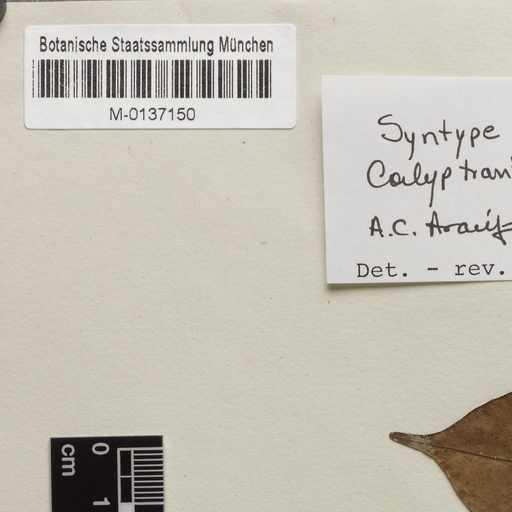 Botanische Staatssammlung München
M-0137150
Syntype
Calyptran
A.C. Araúj
Det. - rev.
0
1
cm